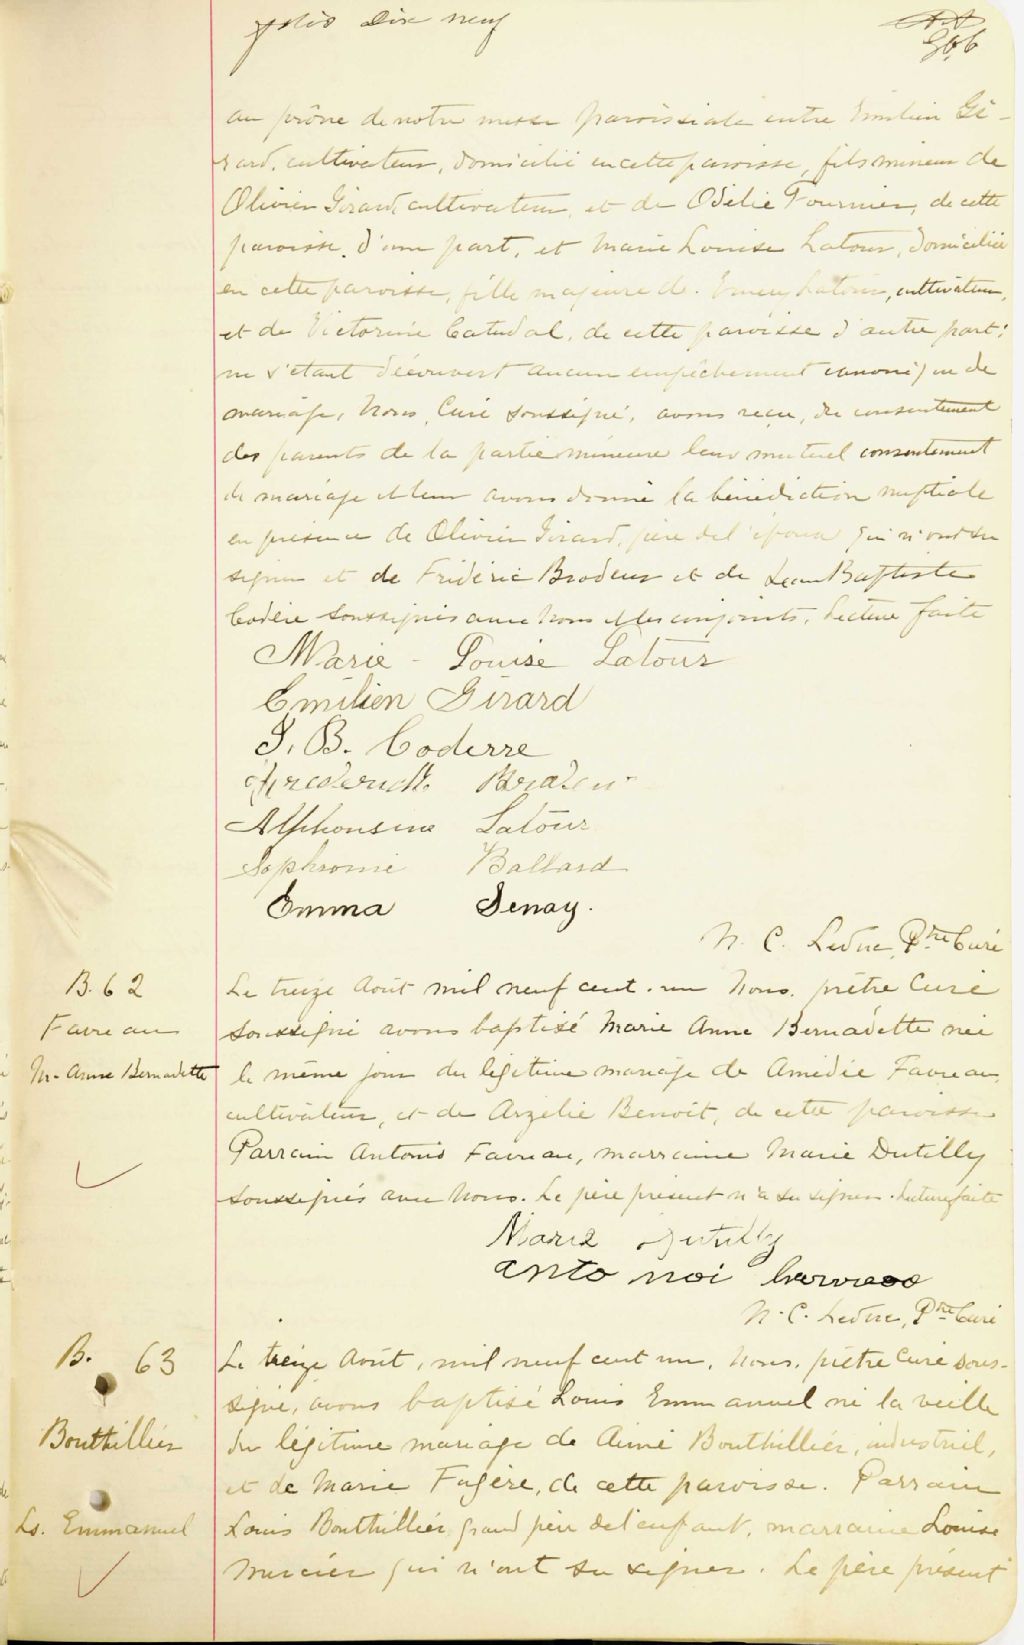 folio Dix neuf
au prône de notre messe paroissiale entre Emilien Gi-
rard, cultivateur, domicilié en cette paroisse, fils mineur de
Olivier Girard, cultivateur, et de Odélie Fournier, de cette
paroisse, d'une part, et Marie Louise Latour, domiciliée
en cette paroisse, fille majeure d' Emery Latour, cultivateur,
et de Victorine Catudal, de cette paroisse d'autre part;
ne s'étant découvert aucun empêchement canonique de
mariage, Nous, Curé soussigné, avons reçu, du consentement
des parents de la partie mineure leur mutuel consentement
de mariage et leur avons donné la bénédiction nuptiale
en présence de Olivier Girard, père de l'époux qui n'ont su
signer et de Frédéric Brodeur et de Jean Baptiste
Codère soussignés avec Nous et les conjoints. Lecture faite
Marie-Louise Latour
Emilien Girard
J. B. Coderre
Frederick Brodeur
Alphonsine Latour
Sophronie Ballard
Emma Senay.
N. C. Leduc, Ptre Curé
B. 62
Favreau
M- Anne Bernadette
Le treize Août mil neuf cent-un Nous, prêtre Curé
soussigné avons baptisé Marie Anne Bernadette née
le même jour du légitime mariage de Amédée Favreau,
cultivateur, et de Arzélie Benoit, de cette paroisse
Parrain Antonio Favreau, marraine Marie Dutilly
soussignés avec Nous. Le père présent n'a su signer. Lecture faite
Marie Dutilly
anto noi
N. C. Leduc, Ptre Curé
B. 63
Bouthillier
Ls. Emmanuel
Le treize Août, mil neuf cent un, Nous, prêtre Curé sous-
signé, avons baptisé Louis Emmanuel né la veille
du légitime mariage de Aimé Bouthillier, industriel,
et de Marie Fugère, de cette paroisse. Parrain
Louis Bouthillier, grand père de l'enfant, marraine Louise
Mercier qui n'ont su signer. Le père présent